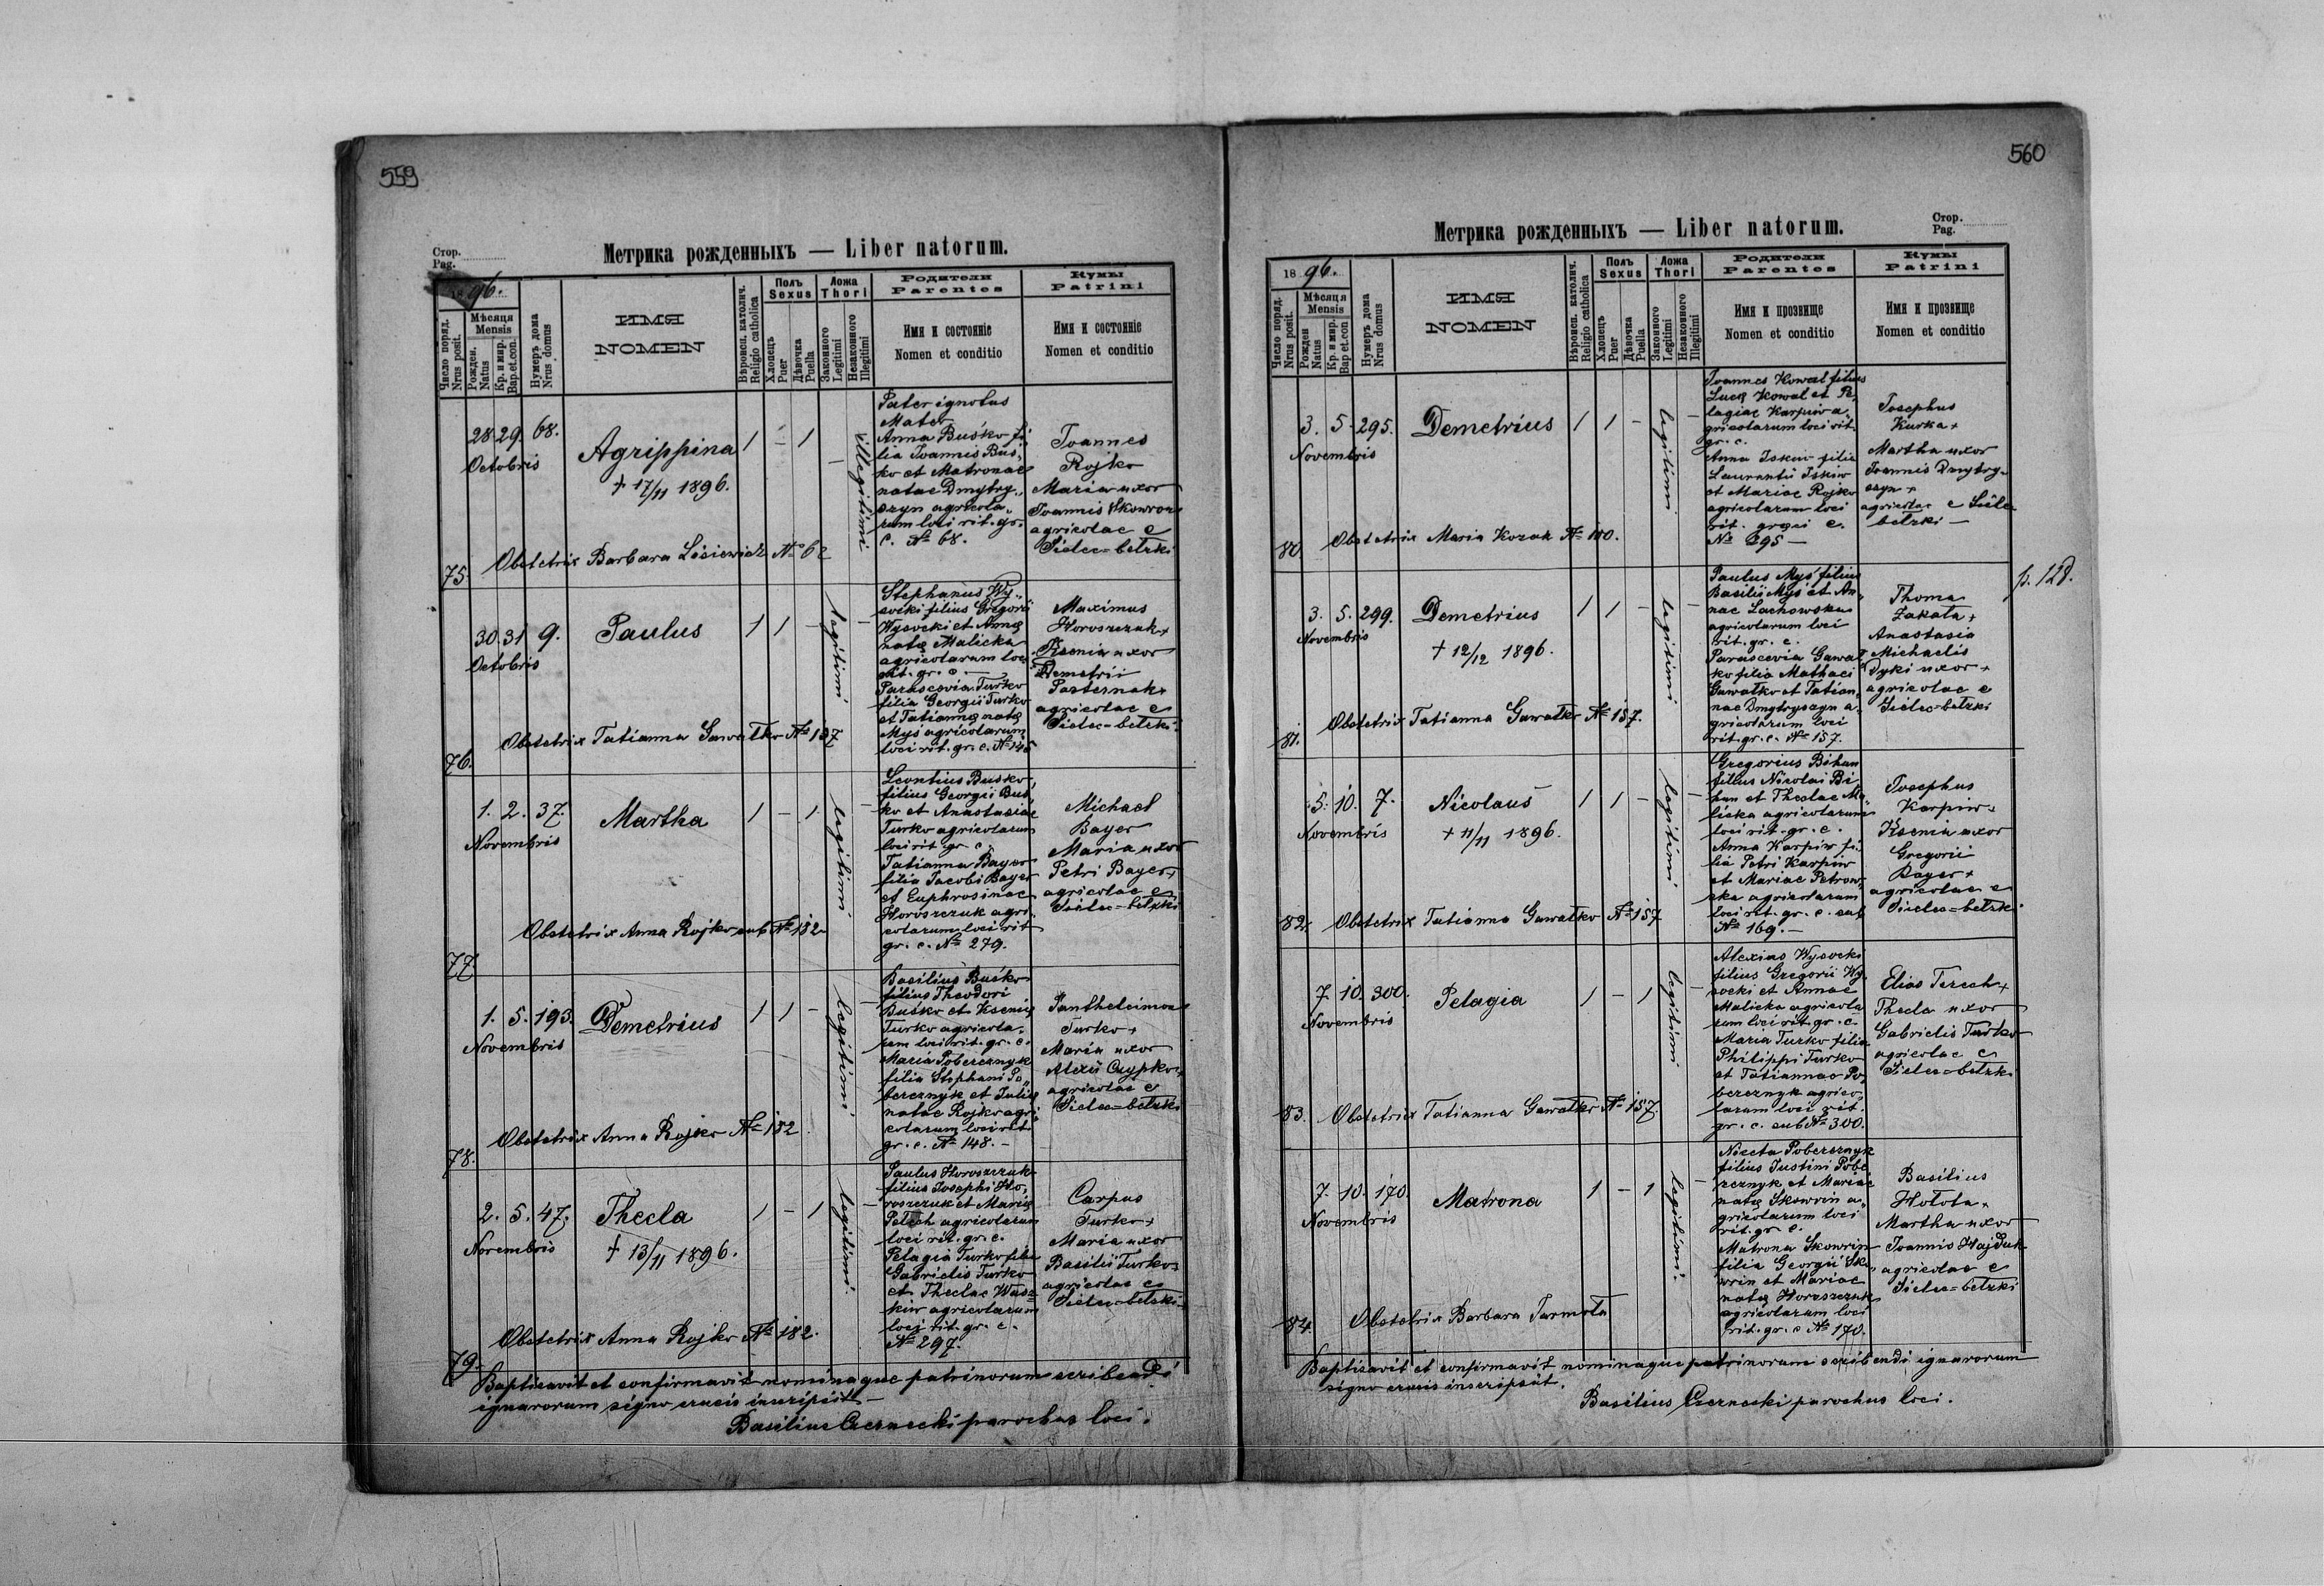 559
Стор.
Pag.
Метрика рожденныхъ — Liber natorum.
1896.
Число поряд.
Nrus posit.
Мѣсяця
Mensis
Рожден.
Natus
Кр. и мир.
Bap.et.con.
Нумеръ дома
Nrus domus
ИМЯ
NOMEN
Вѣроисп. католич.
Religio catholica
Полъ
Sexus
Хлопецъ
Puer
Дѣвочка
Puella
Ложа
Thori
Законного
Legitimi
Незаконного
Illegitimi
Родители
Parentes
Имя и состояніе
Nomen et conditio
Кумы
Patrini
Имя и состояніе
Nomen et conditio
75.
28 29. 68.
Octobris
Agrippina
+ 17/11 1896.
1 - 1
-
illegitimi
Pater ignotus
Mater
Anna Buśko fi
lia Joannis Buś„
ko et Matronae
natae Dmytry„
szyn agricola„
rum loci rit. gr.
c. № 68.
Joannes
Rojko
Maria uxor
Joannis Skowron
agricolae e
Sielec=bełzki
Obstetrix Barbara Lisiewicz № 62
76.
30 31 9.
Octobris
Paulus
1 1 -
legitimi
-
Stephanus Wy„
socki filius Gregorii
Wysocki et Annę
natę Malicka
agricolarum loci
rit. gr. c. —
Parascevia Turko
filia Georgii Turko
et Tatiannę natę
Myś agricolarum
loci rit. gr. c. № 145
Maximus
Horoszczuk +
Ksenia uxor
Demetrii
Pasternak +
agricolae e
Sielec=bełzki.
Obstetrix Tatianna Gawałko № 157
77.
1. 2. 37.
Novembris
Martha
1 - 1
legitimi
-
Leontius Buśko
filius Georgii Buś„
ko et Anastasiae
Turko agricolarum
loci rit gr c.
Tatianna Bayer
filia Jacobi Bayer
et Euphrosinae
Horoszczuk agri„
colarum loci rit
gr. c. № 279.
Michael
Bayer
Maria uxor
Petri Bayer +
agricolae e
Sielec=bełzki
Obstetrix Anna Rojko sub № 182
78.
1. 5. 193.
Novembris
Demetrius
1 1 -
legitimi
-
Basilius Buśko
filius Theodori
Buśko et Ksenię
Turko agricola„
rum loci rit. gr. c.
Maria Pobereznyk
filia Stephani Po„
bereznyk et Julię
natae Rojko agri„
colarum loci rit.
gr. c. № 148. -
Pantheleimon
Turko +
Maria uxor
Alexii Czypko +
agricolae e
Sielec=bełzki
Obstetrix Anna Rojko № 182
79.
2. 5. 47.
Novembris
Thecla
+ 13/11 1896.
1 - 1
legitimi.
-
Paulus Horoszczuk
filius Josephi Ho„
roszczuk et Marię
Petech agricolarum
loci rit. gr. c.
Pelagia Turko filia
Gabrielis Turko
et Theclae Wasz
kiw agricolarum
loci rit. gr. c.
№ 297.
Carpus
Turko +
Maria uxor
Basilii Turko +
agricolae e
Sielec=bełzki
Obstetrix Anna Rojko № 182.
Baptisavit et confirmavit nominaque patrinorum scribendi
ignarorum signo crucis inscripsit —
Basilius Czernecki parochus loci.
560
Стор.
Pag.
Метрика рожденныхъ — Liber natorum.
1896.
Число поряд.
Nrus posit.
Мѣсяця
Mensis
Рожден
Natus
Кр. и мир.
Bap et.con.
Нумеръ дома
Nrus domus
ИМЯ
NOMEN
Вѣроисп. католич.
Religio catholica
Полъ
Sexus
Хлопецъ
Puer
Дѣвочка
Puella
Ложа
Thori
Законного
Legitimi
Незаконного
Illegitimi
Родители
Parentes
Имя и прозвище
Nomen et conditio
Кумы
Patrini
Имя и прозвище
Nomen et conditio
80
3. 5. 295.
Novembris
Demetrius
1 1 -
legitimi
-
Joannes Kowal filius
Lucę Kowal et Pe„
lagiae Karpiw a„
gricolarum loci rit.
gr. c.
Anna Iskiw filia
Laurentii Iskiw
et Mariae Rojko
agricolarum loci
rit. graeci c.
№ 295 —
Josephus
Kurka +
Martha uxor
Joannis Dmytry„
szyn +
agricolae e Siele
bełzki —
Obstetrix Maria Kozak № 100.
81.
3. 5. 299.
Novembris
Demetrius
+ 12/12 1896.
1 1 -
legitimi
-
Paulus Myś filius
Basilii Myś et An„
nae Lachowska
agricolarum loci
rit. gr. c.
Parascevia Gawał
ko filia Mathaei
Gawałko et Tatian„
nae Dmytryszyn a„
gricolarum loci
rit. gr. c. № 157.
Thoma
Zakała +
Anastasia
Michaelis
Dyki uxor +
agricolae e
Sielec=bełzki
p. 128.
Obstetrix Tatianna Gawałko № 157.
82.
5. 10. 7.
Novembris
Nicolaus
+ 11/11 1896.
1 1 -
legitimi
-
Gregorius Bihun
filius Nicolai Bi„
hun et Theclae Ma„
licka agricolarum
loci rit. gr. c.
Anna Karpiw fi„
lia Petri Karpiw
et Mariae Petrow„
ska agricolarum
loci rit. gr. c. sub
№ 169. —
Josephus
Karpiw +
Ksenia uxor
Gregorii
Bayer +
agricolae e
Sielec=bełzk.
Obstetrix Tatianna Gawałko № 157
83.
7. 10. 300.
Novembris
Pelagia
1 - 1
legitimi
-
Alexius Wysocki
filius Gregorii Wy„
socki et Annae
Malicka agricola
rum loci rit. gr. c.
Maria Turko filia
Philippi Turko
et Tatiannae Po„
bereznyk agrico„
larum loci rit.
gr. c. sub № 300.
Elias Terech +
Thecla uxor
Gabrielis Turko
agricolae e
Sielec=bełzk
Obstetrix Tatianna Gawałko № 157.
84.
7. 10. 170.
Novembris
Matrona
1 - 1
legitimi.
-
Niceta Pobereznyk
filius Justini Pobe
reznyk et Mariae
natę Skowrin a„
gricolarum loci
rit. gr. c.
Matrona Skowrin
filia Georgii Sko„
wrin et Mariae
natę Horoszczuk
agricolarum loci
rit. gr. c № 170.
Basilius
Hołota +
Martha uxor
Joannis Hajduk
agricolae e
Sielec=bełzki
Obstetrix Barbara Jarmoła
Baptisavit et confirmavit nominaque patrinorum scribendi ignarorum
signo crucis inscripsit.
Basilius Czernecki parochus loci.